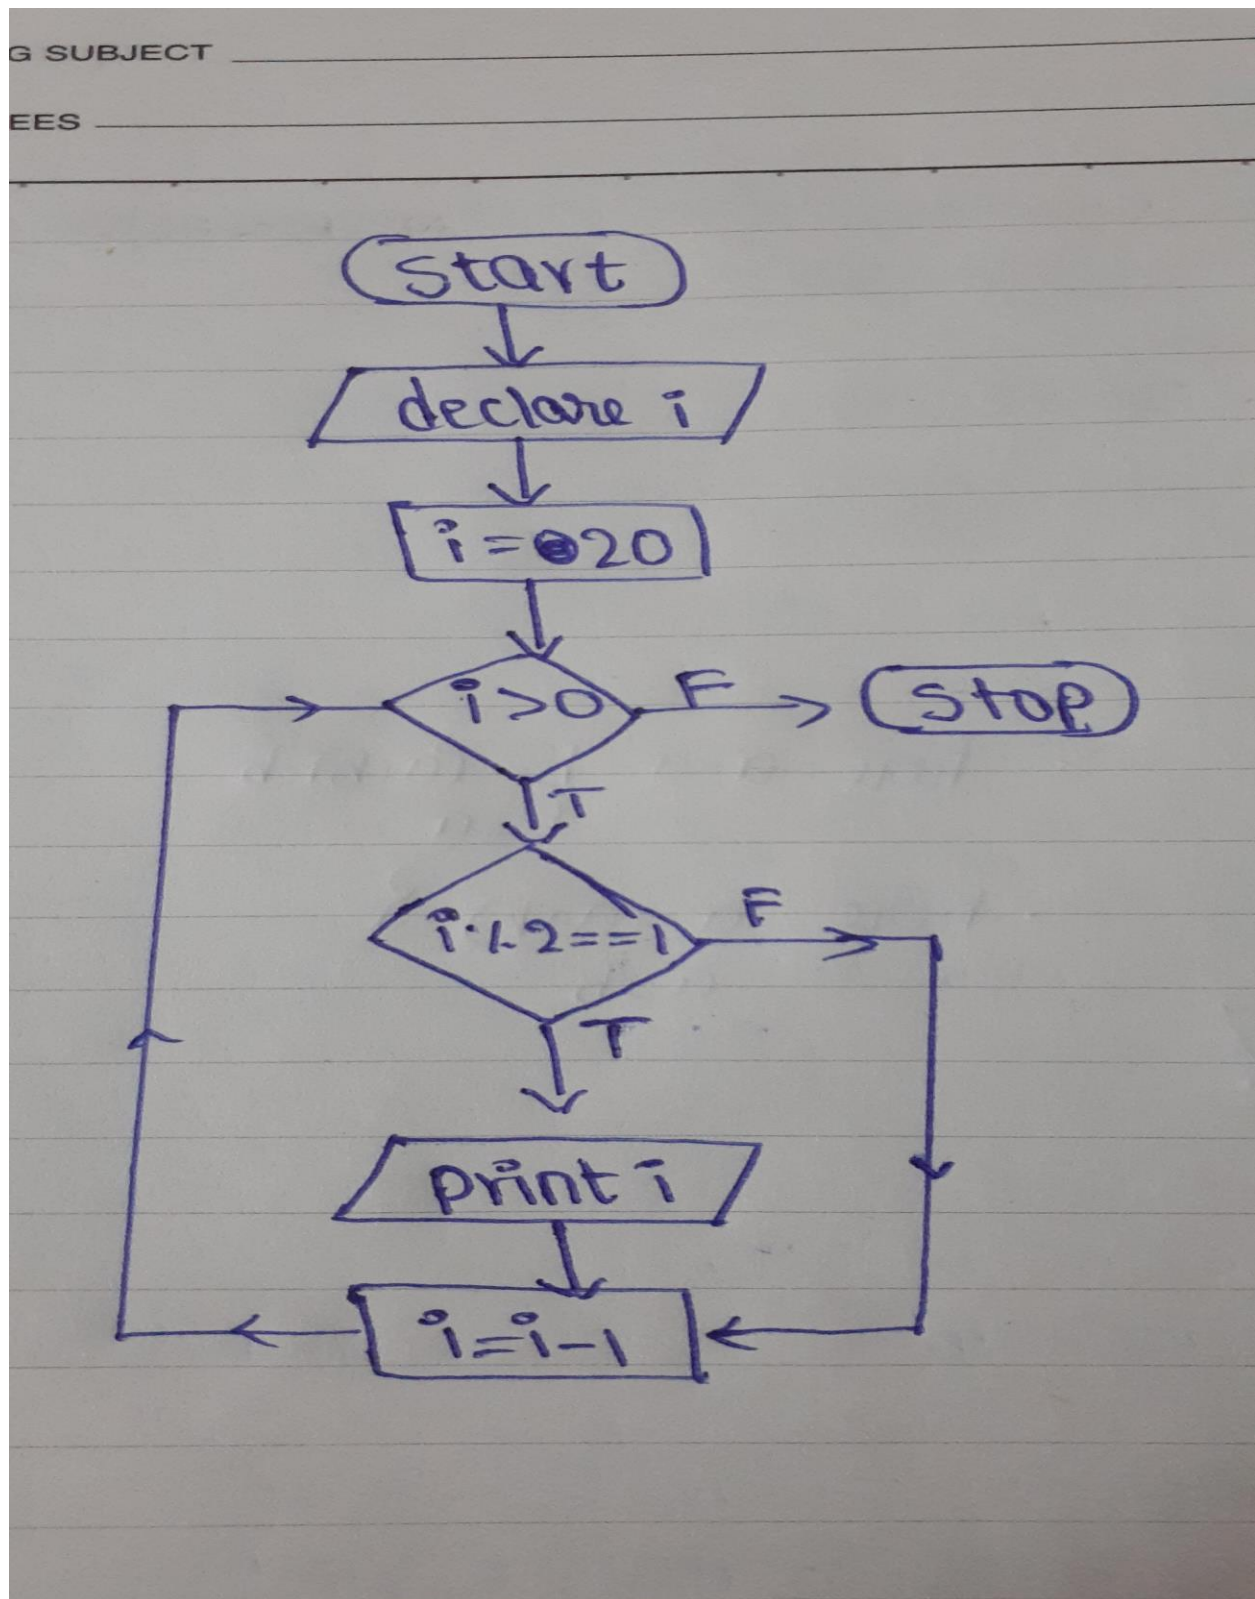 G SUBJECT
EES
start
declare i
i=20
i>0
F
stop
T
i%2==1
F
T
print i
i=i-1